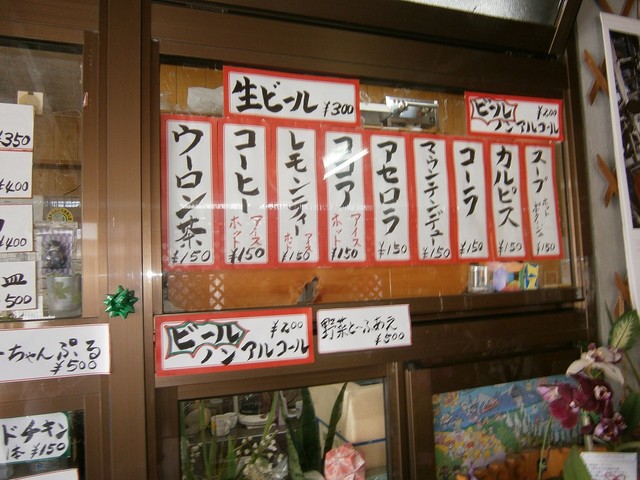 生ビール ¥300
ビール ¥200
ノンアルコール
ウーロン茶 ¥150
コーヒー アイス ホット ¥150
レモンティー アイス ホット ¥150
ココア アイス ホット ¥150
アセロラ ¥150
マウンテンデュ ¥150
コーラ ¥150
カルピス ¥150
スープ ¥150
¥350
¥400
¥400
皿
500
ビール ¥200
ノンアルコール
野菜と〜ふあえ
¥500
ーちゃんぷる
¥500
ドチキン
1本 ¥150